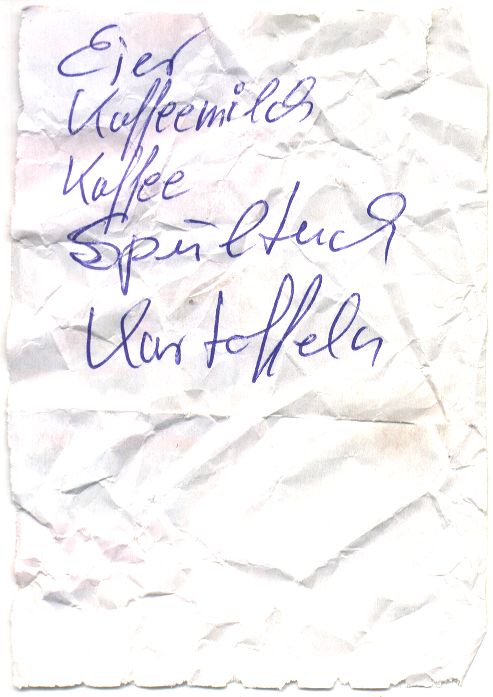 Eier
Kaffeemilch
Kaffee
Spültuch
Kartoffeln